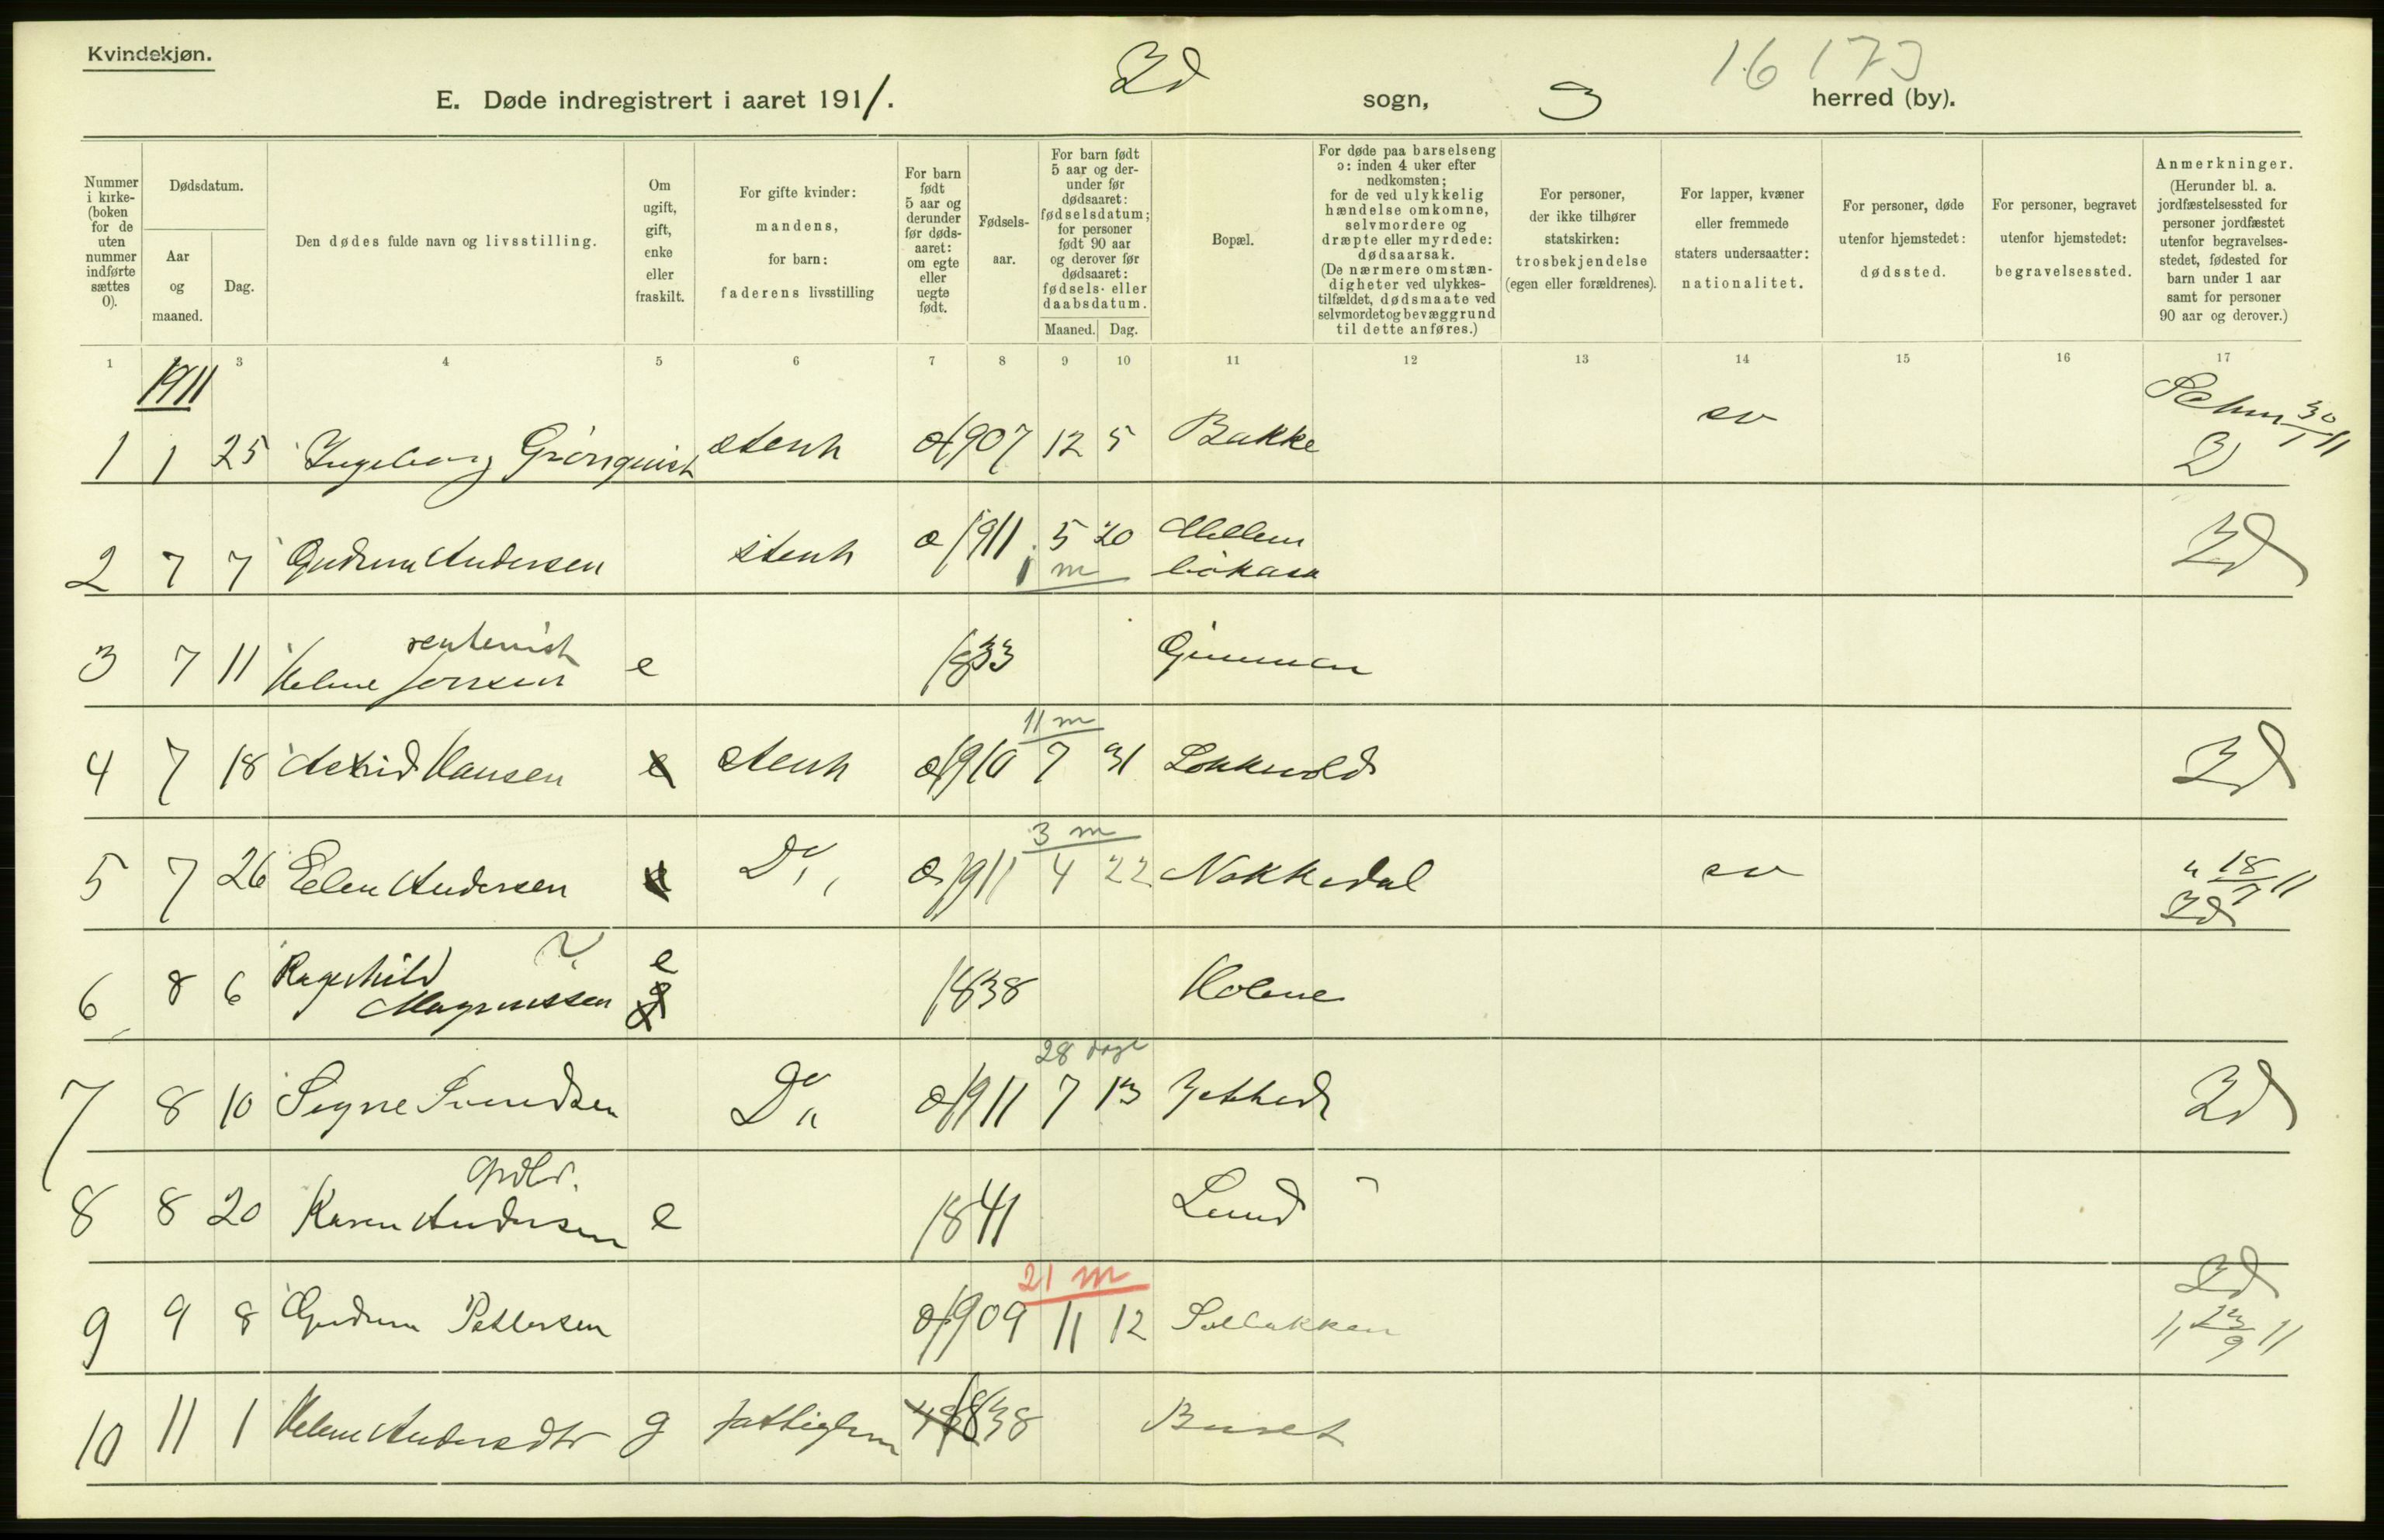 Kvindekjøn.
16 173
E. Døde indregistrert i aaret 1911. Id sogn, herred (by).
Nummer i kirke-(boken for de uten nummer indførte sættes 0).
Dødsdatum.
Aar og maaned.
Dag.
Den dødes fulde navn og livsstilling.
Om ugift, gift, enke eller fraskilt.
For gifte kvinder: mandens, for barn: faderens livsstilling
For barn født 5 aar og derunder før døds-aaret: om egte eller uegte født.
Fødsels-aar.
For barn født 5 aar og der-under før dødsaaret: fødselsdatum; for personer født 90 aar og derover før dødsaaret: fødsels- eller daabsdatum.
Maaned. Dag.
Bopæl.
For døde paa barselseng ɔ: inden 4 uker efter nedkomsten; for de ved ulykkelig hændelse omkomne, selvmordere og dræpte eller myrdede: dødsaarsak. (De nærmere omstæn-digheter ved ulykkes-tilfældet, dødsmaate ved selvmordet og bevæggrund til dette anføres.)
For personer, der ikke tilhører statskirken: trosbekjendelse (egen eller forældrenes).
For lapper, kvæner eller fremmede staters undersaatter: nationalitet.
For personer, døde utenfor hjemstedet: dødssted.
For personer, begravet utenfor hjemstedet: begravelsessted.
Anmerkninger. (Herunder bl. a. jordfæstelsessted for personer jordfæstet utenfor begravelses-stedet, fødested for barn under 1 aar samt for personer 90 aar og derover.)
1 3 4 5 6 7 8 9 10 11 12 13 14 15 16 17
1911
1 1 25 Ingeborg Grönquist stenh 1907 12 5 Bakke sv 30/1 11
2 7 7 Gudrun Andersen stenh 1911 5 20 Mellem
1 m
rentenist
3 7 11 Helene Jensen e 1833
11 m
4 7 18 Astrid Hansen stenh 1910 7 31 Id
3 m
5 7 26 Elen Andersen Do 1911 4 22 Nokkedal sv 18/7 11
Id
6 8 6 Ragnhild ? e
Magnussen 1838 Holene
28 dage
7 8 10 Signe Svendsen Do 1911 7 13 Id
8 8 20 Karen Andersen e 1841 Lund
21 m Id
9 9 8 Gudrun Pettersen 1909 11 12 Solbakken 23/9 11
10 11 1 Helene Andersdtr g fattiglem 1838 Buset